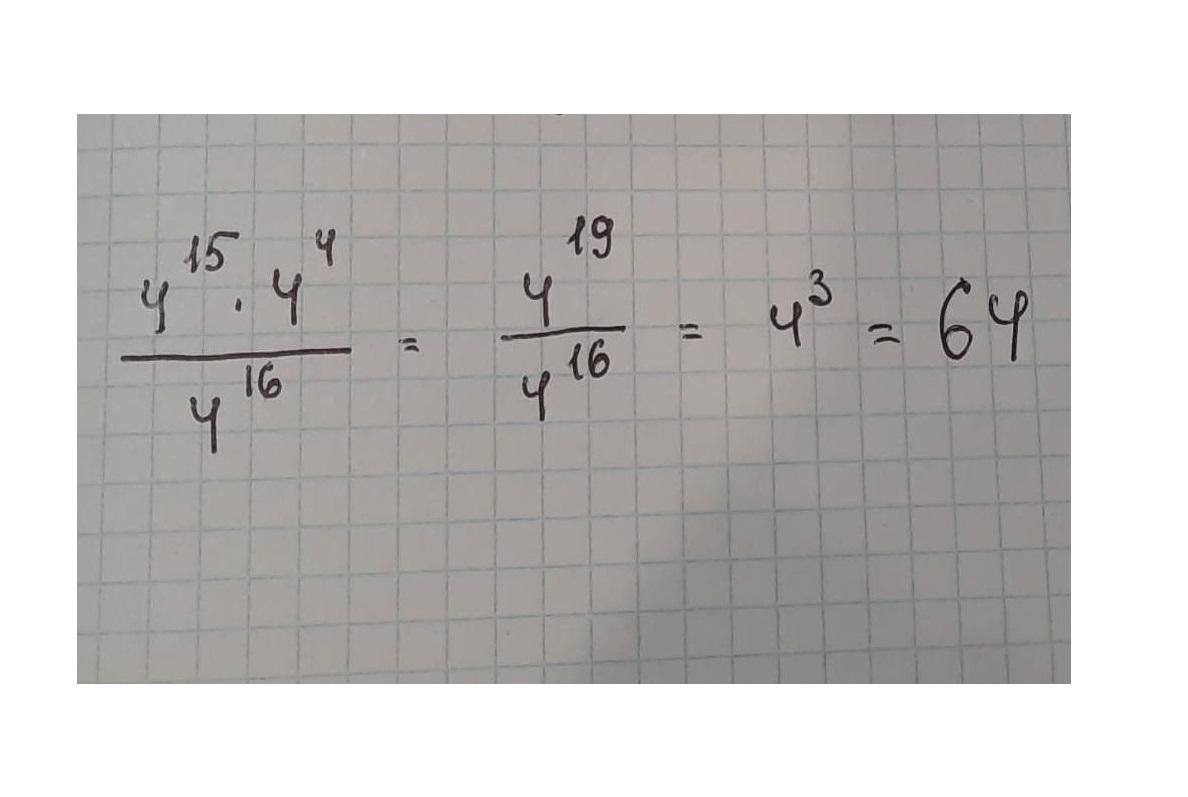 \frac{4^{15} \cdot 4^{4}}{4^{16}} = \frac{4^{19}}{4^{16}} = 4^{3} = 64